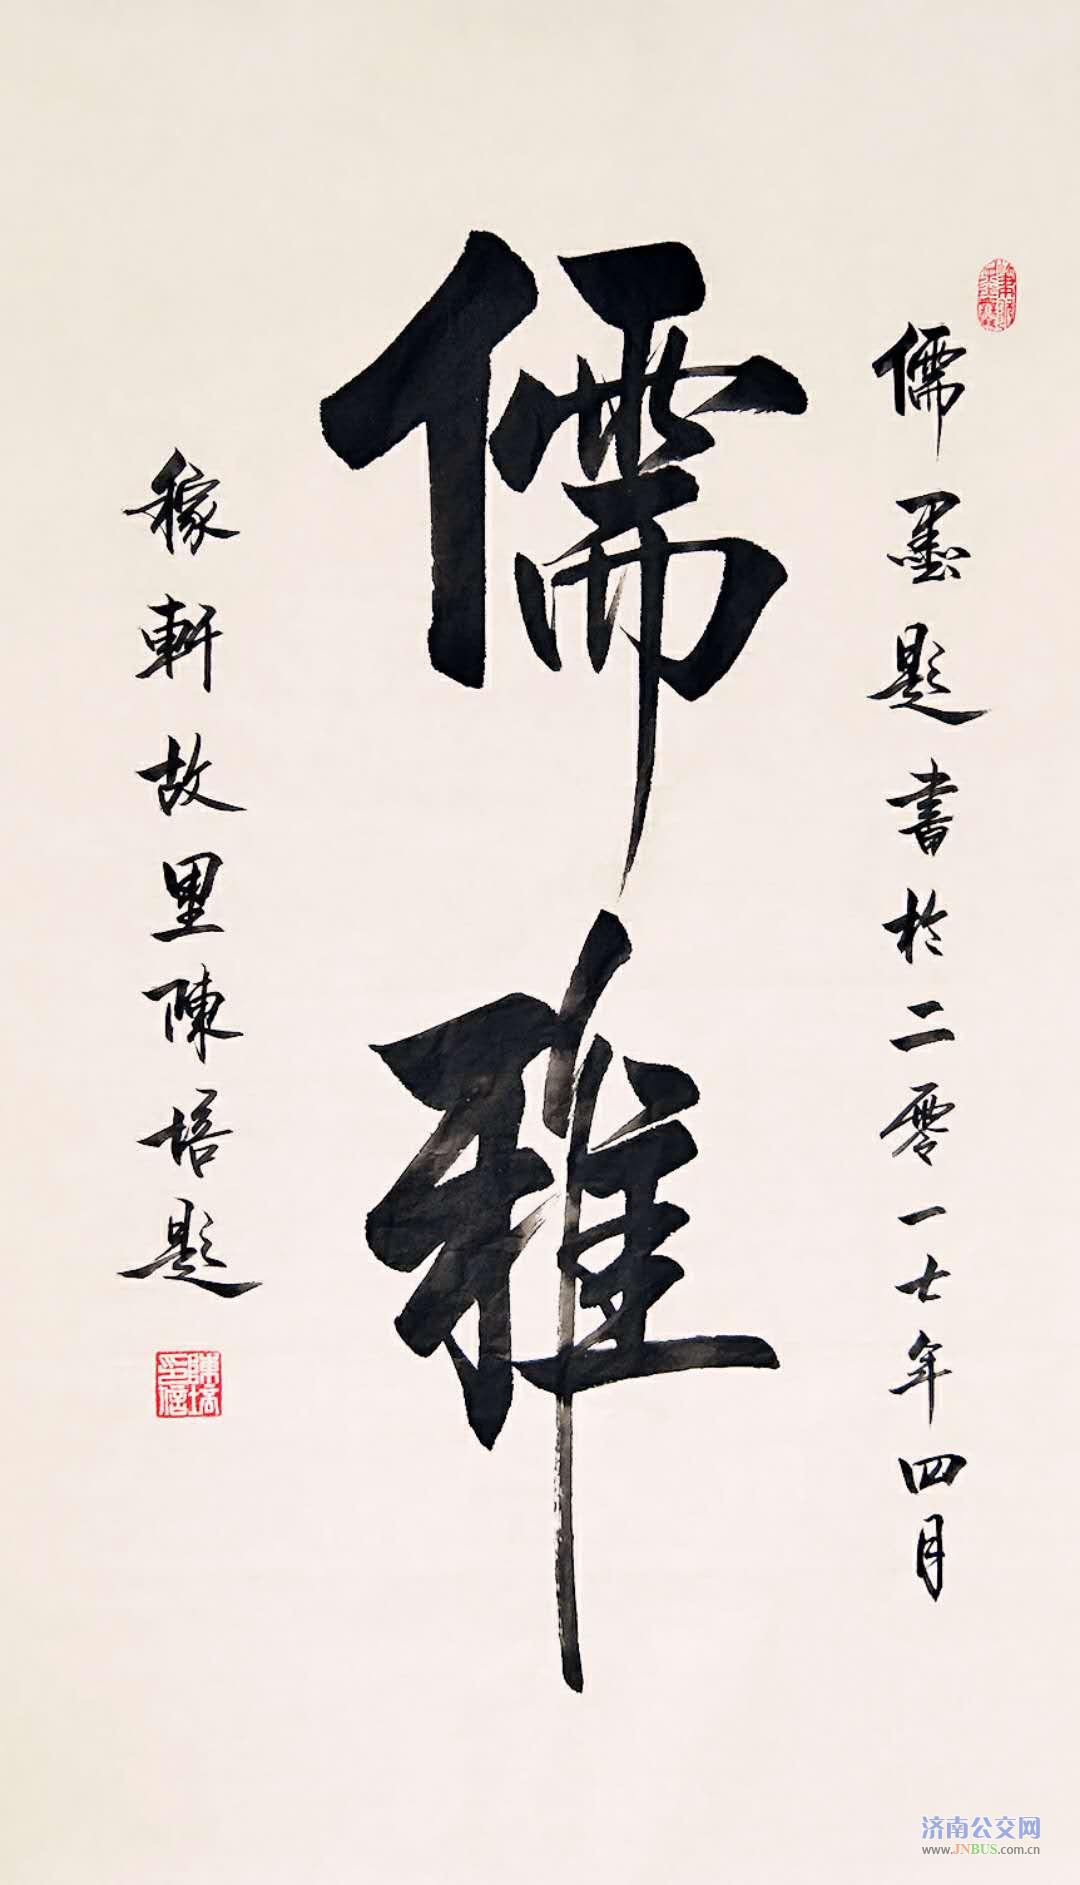 儒墨题書於二零一七年四月
儒雅
稼軒故里陳培题
济南公交网
www.JNBUS.com.cn